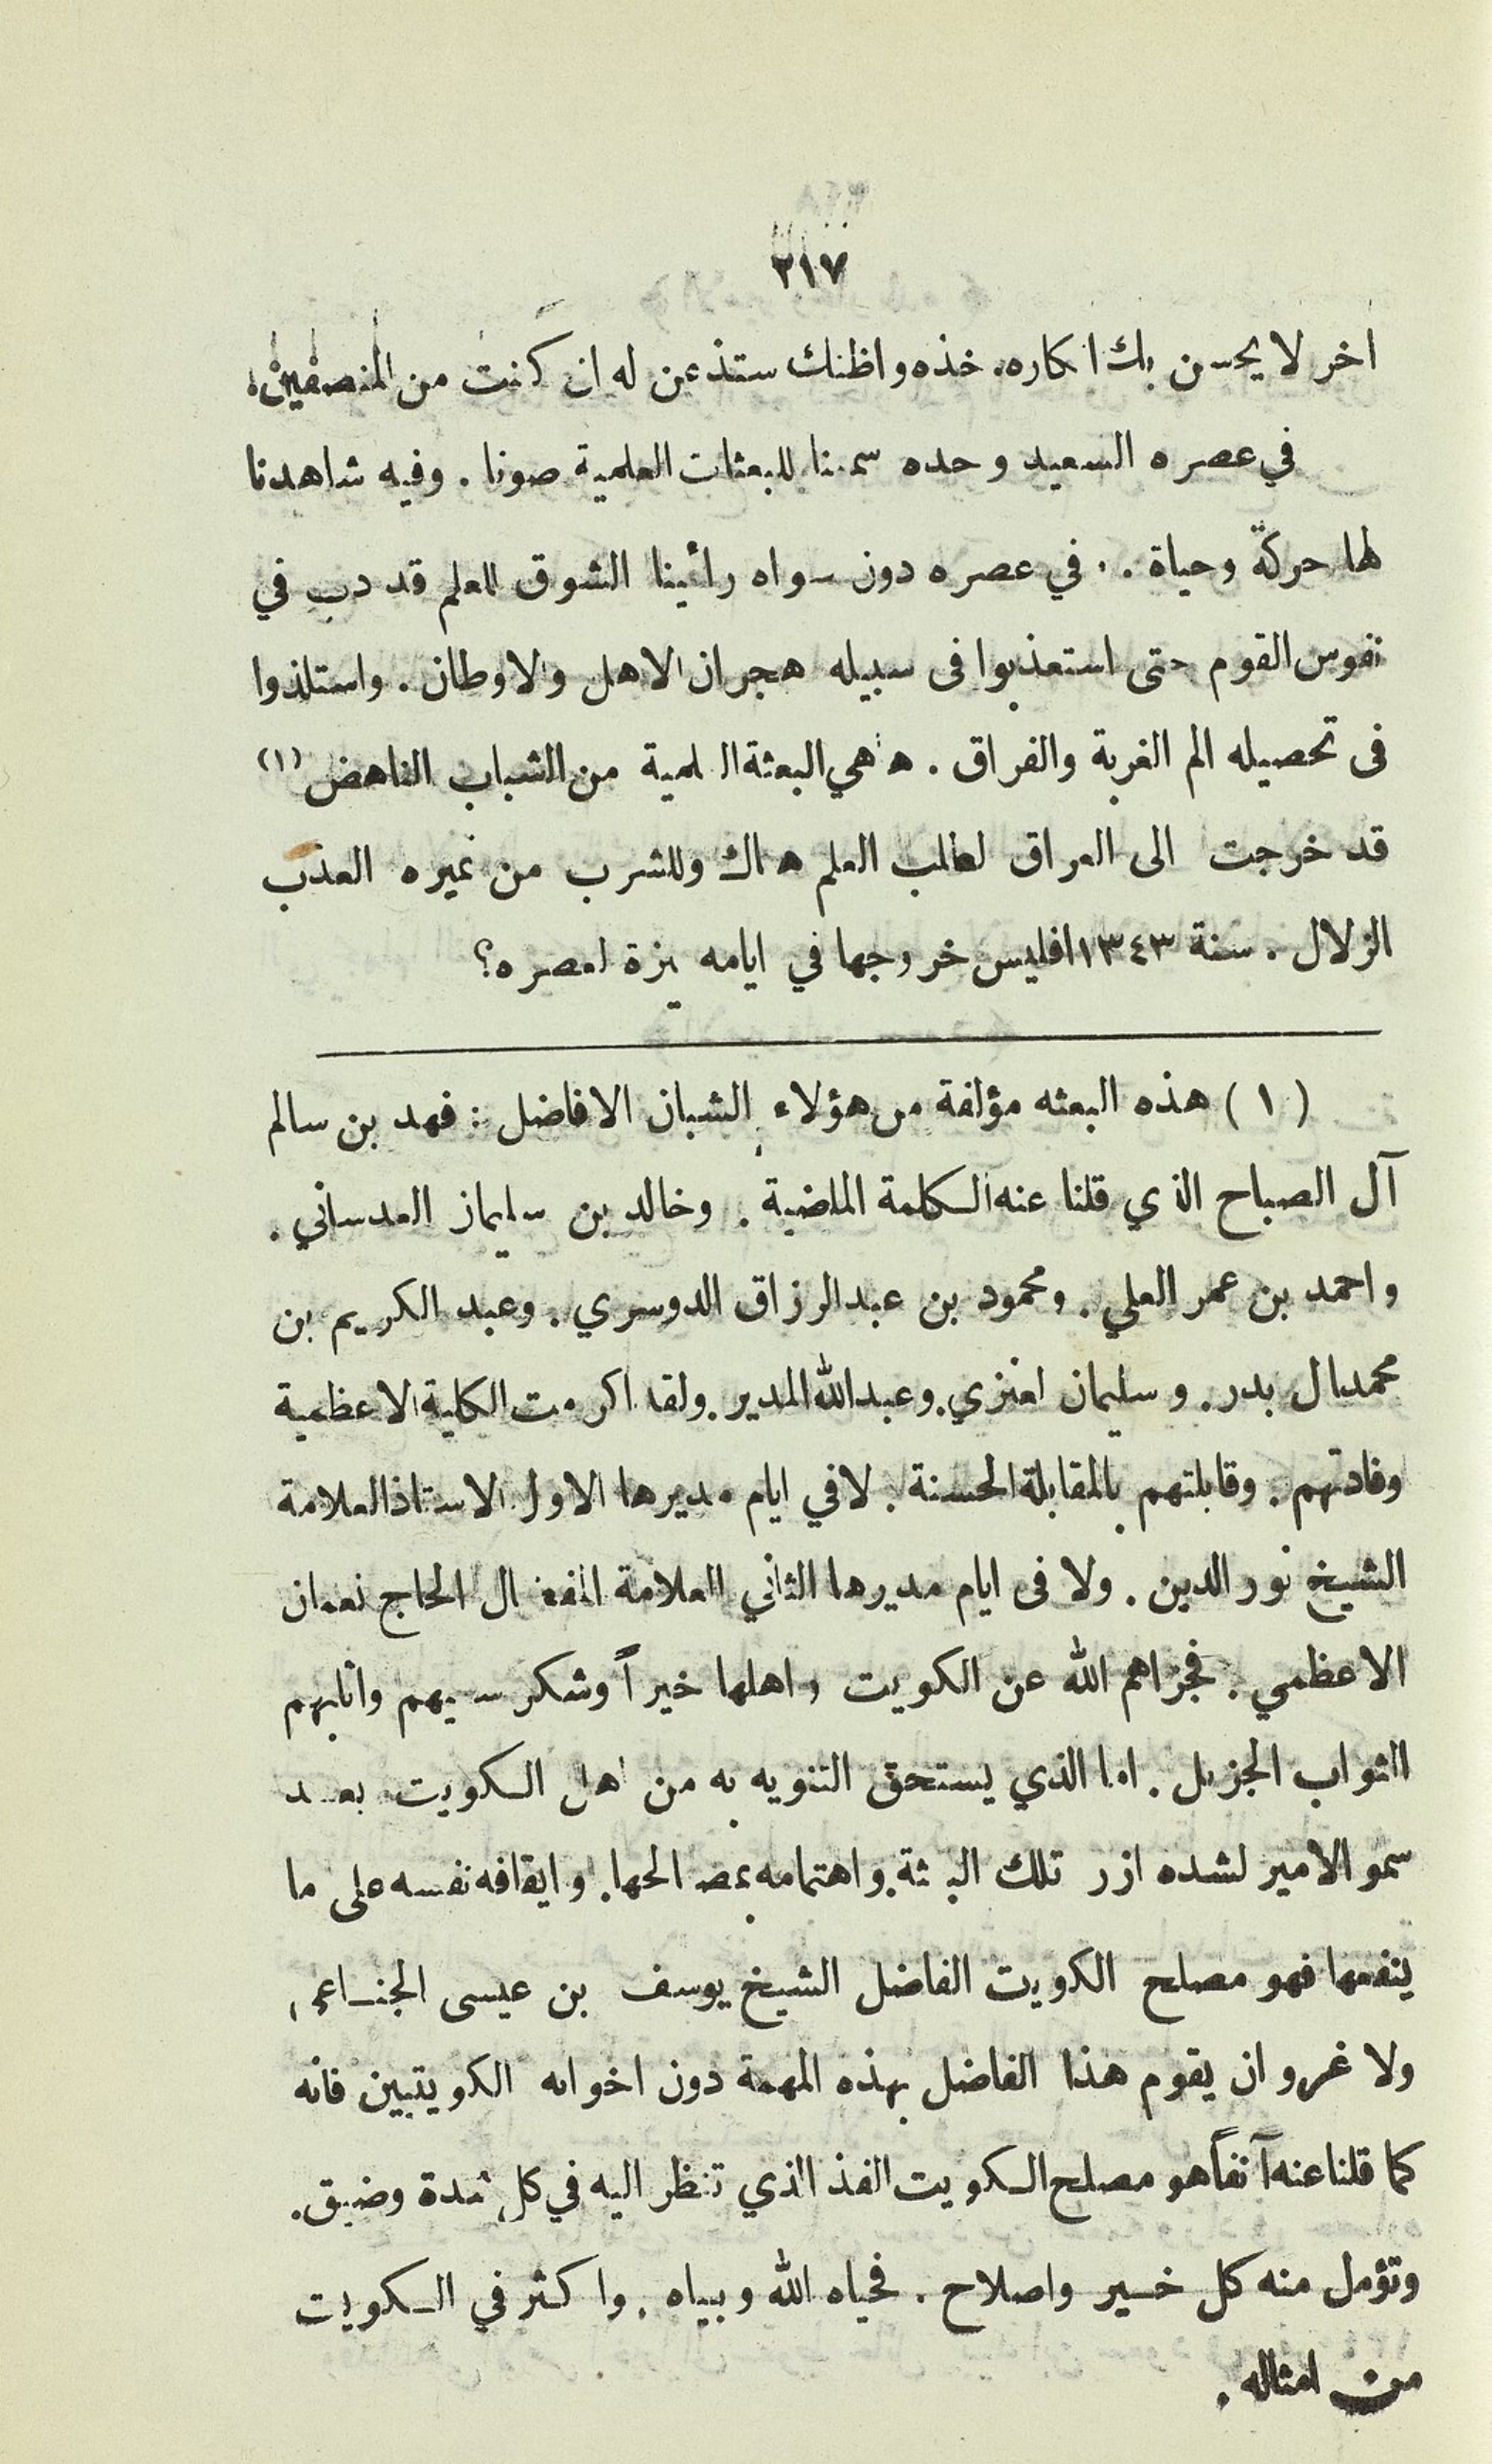 ٢١٧
اخر لا يحسن بك انكاره. خذه واظنك ستذعن له ان كنت من المنصفين.
في عصره السعيد وحده سمعنا للبعثات العلمية صوتا . وفيه شاهدنا
لها حركة وحياة . . في عصره دون سواه رأينا الشوق للعلم قد دب في
نفوس القوم حتى استعذبوا في سبيله هجران الاهل والاوطان . واستلذوا
فى تحصيله الم الغربة والفراق . هاهي البعثة العلمية من الشباب الناهض (١)
قد خرجت الى العراق لطلب العلم هناك وللشرب من نميره العذب
الزلال . سنة ١٣٤٣ افليس خروجها في ايامه ميزة لعصره؟
( ١ ) هذه البعثه مؤلفة من هؤلاء الشبان الافاضل : فهد بن سالم
آل الصباح الذي قلنا عنه الكلمة الماضية . وخالد بن سليمان العدساني .
واحمد بن عمر العلي . ومحمود بن عبدالرزاق الدوسري . وعبد الكريم بن
محمد ال بدر . وسليمان العنزي . وعبدالله المدير . ولقد اكرمت الكلية الاعظمية
وفادتهم . وقابلتهم بالمقابلة الحسنة . لافي ايام مديرها الاول الاستاذ العلامة
الشيخ نور الدين . ولا فى ايام مديرها الثاني العلامة المفضال الحاج نعمان
الاعظمي . فجزاهم الله عن الكويت واهلها خيراً وشكر سعيهم واثابهم
الثواب الجزيل . اما الذي يستحق التنويه به من اهل الكويت بعد
سمو الامير لشده ازر تلك البعثة . واهتمامه بمصالحها . وايقافه نفسه على ما
ينفعها فهو مصلح الكويت الفاضل الشيخ يوسف بن عيسى الجناعي ،
ولا غرو ان يقوم هذا الفاضل بهذه المهمة دون اخوانه الكويتيين فانه
كما قلنا عنه آنفاً هو مصلح الكويت الفذ الذي تنظر اليه في كل شدة وضيق .
وتؤمل منه كل خير واصلاح . فحياه الله وبياه . واكثر في الكويت
من امثاله .